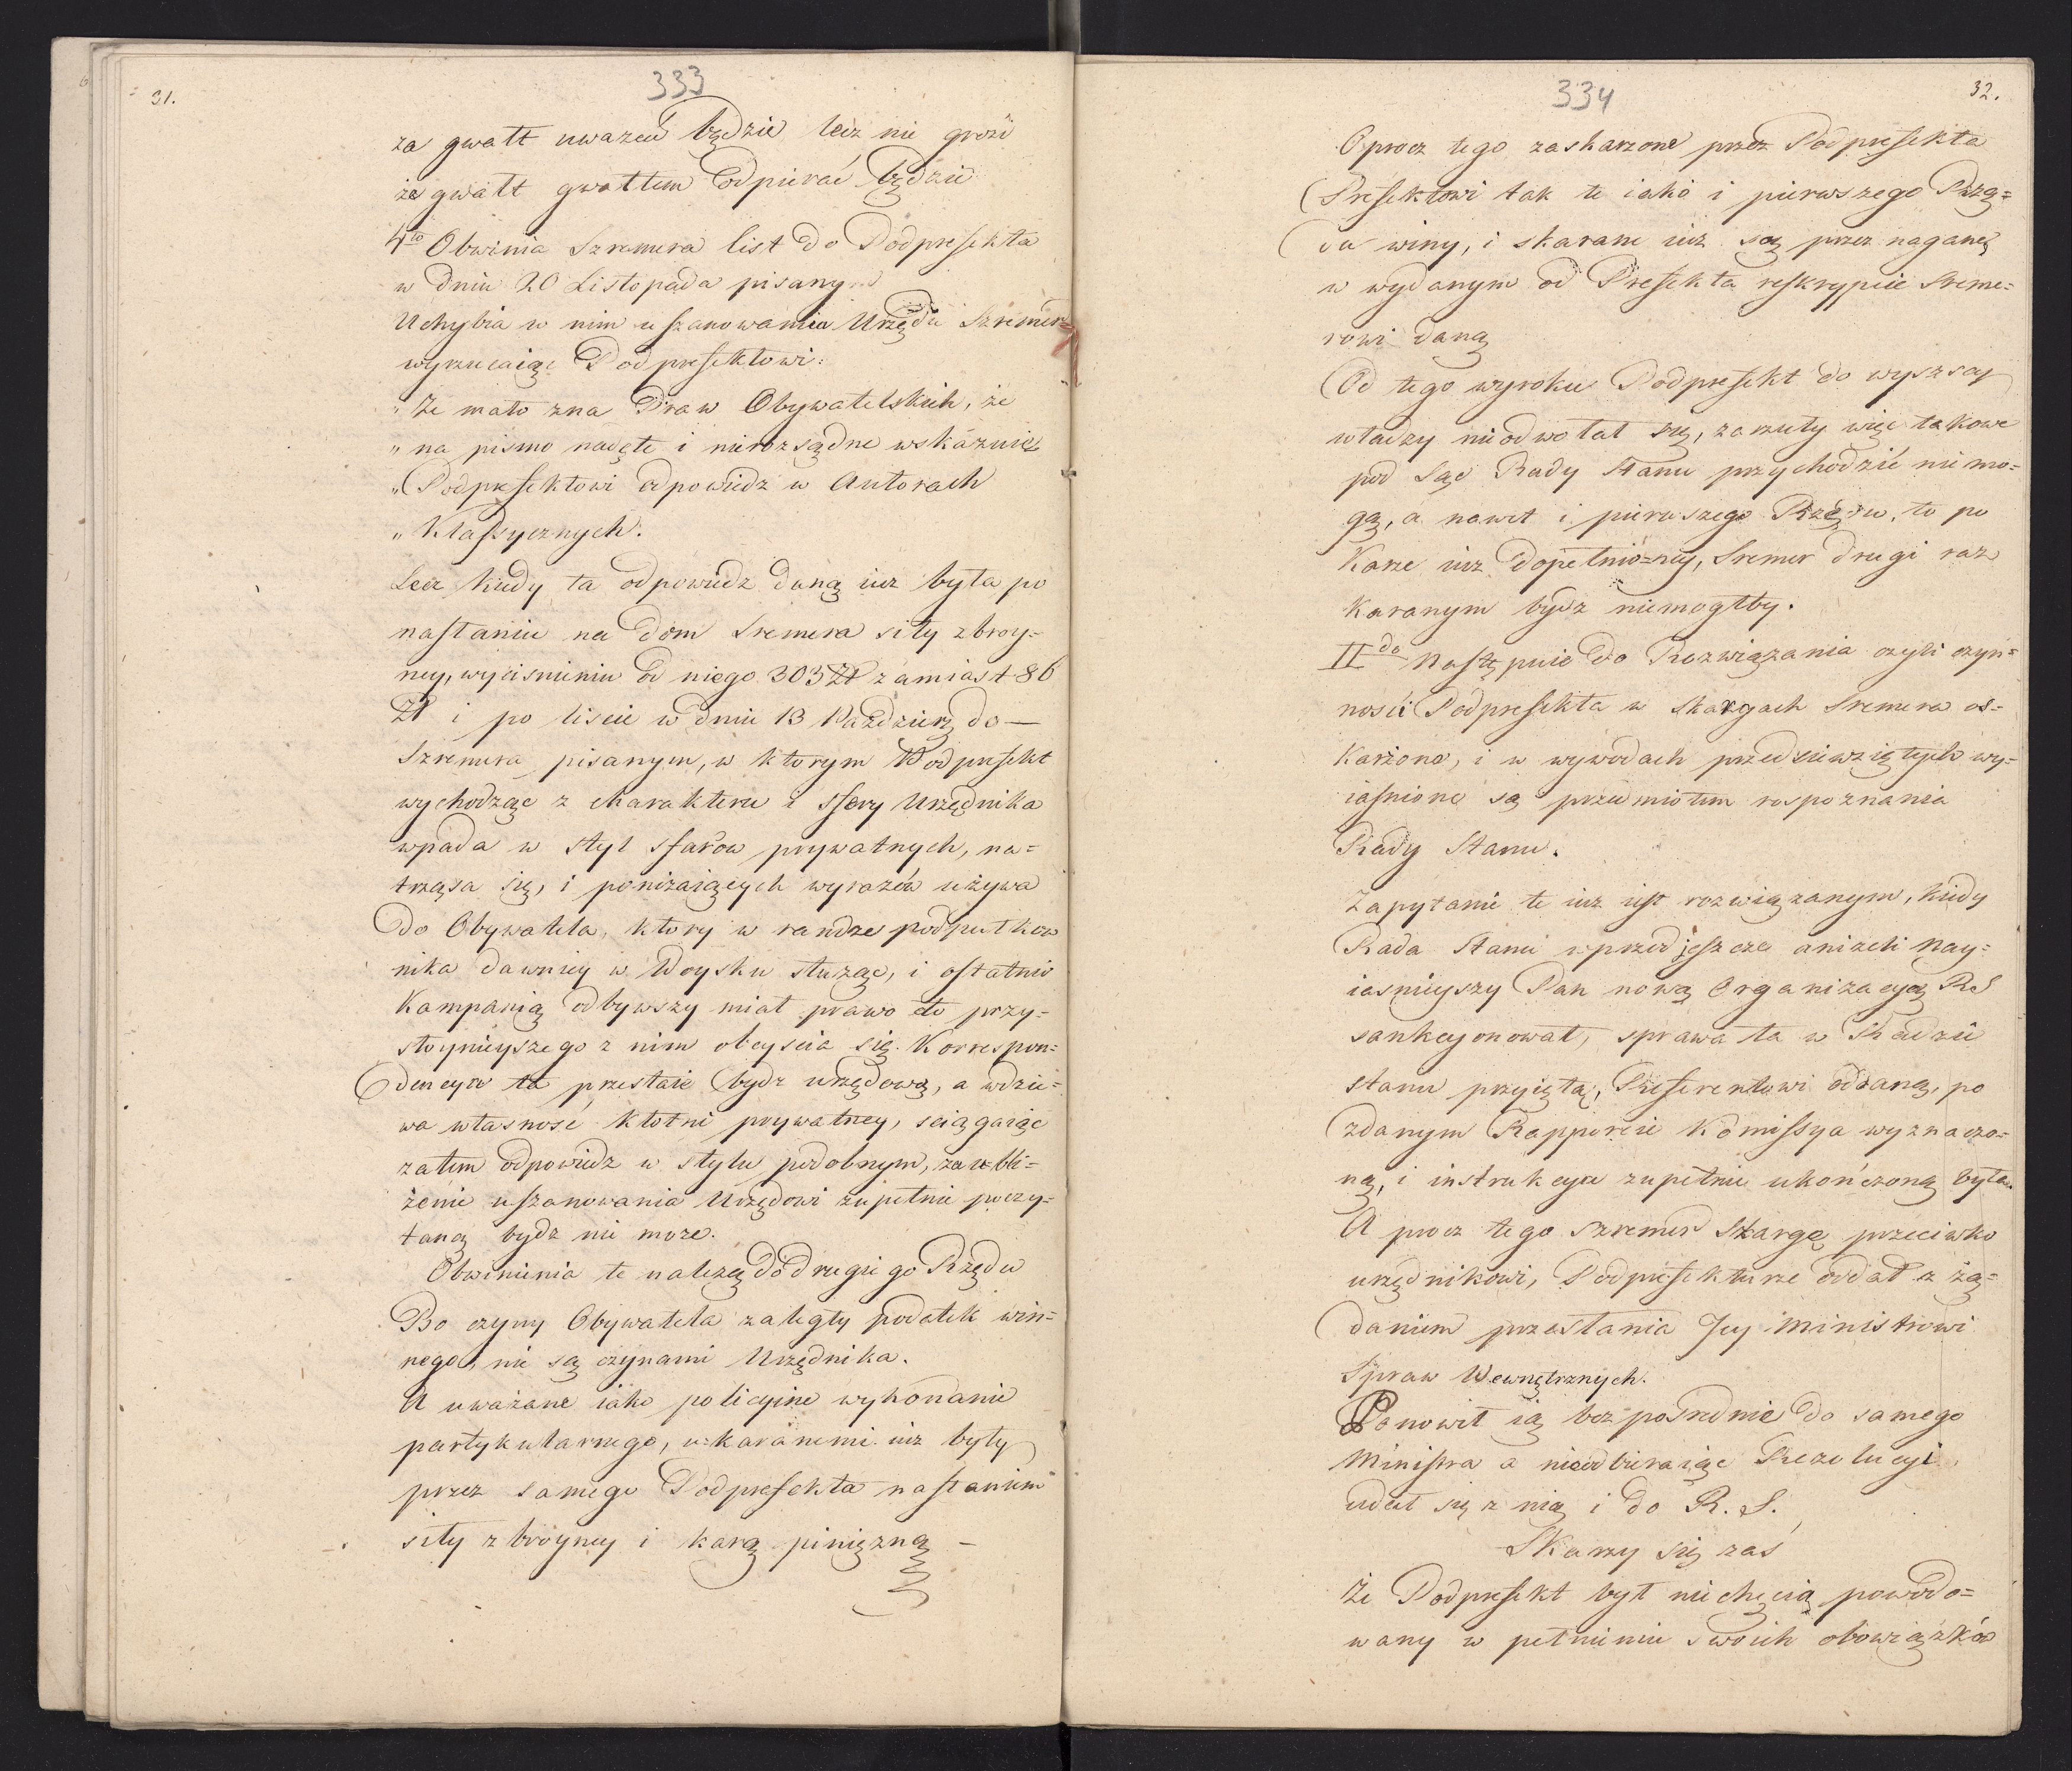 31.
333
za gwałt uważać będzie lecz nie grozi
że gwałt gwałtem odpierać będzie
4to Obwinia Szremera list do Podprefekta
w dniu 20 Listopada pisany
Uchybia w nim uszanowania Urzędu Szremer
wyrzucaiąc Podprefektowi:
„Że mało zna Praw Obywatelskich, że
„na pismo nadęte i nierozsądne wskazuie
„Podprefektowi odpowiedz w Autorach
„Klassycznych.
Lecz kiedy ta odpowiedz daną iuż była po
nasłaniu na dom Sremera siły zbroy=
ney, wyciśnieniu od niego 303 Zł zamiast 86
Zł i po liście w dniu 13 Paździer do —
Szremera pisanym, w ktorym Podprefekt
wychodząc z charakteru i sfery Urzędnika
wpada w styl sfarow prywatnych, na=
trząsa się, i poniżaiących wyrazów używa
do Obywatela, ktory w randze podpułkow
nika dawniey w Woysku służąc, i ostatnio
Kampanią odbywszy miał prawo do przy=
stoynieyszego z nim obeyscia się. Korrespon=
dencya ta przestaie bydz urzędową, a wdzie=
wa własność kłotni prywatney, sciągaiąc
zatem odpowiedz w stylu podobnym, za ubli=
żenie uszanowania Urzędowi zupełnie poczy=
taną bydz nie może.
Obwinienia te należą do drugiego Rzędu
Bo czyny Obywatela zaległy podatek win=
nego, nie są czynami Urzędnika.
A uważane iako policyine wykonanie
partykularnego, ukaranemi iuż były
przez samego Podprefekta nasłaniem
siły zbroyney i karą pinięzną —
334
32.
Oprocz tego zaskarzone przez Podprefekta
Prefektowi tak te iako i pierwszego Rzę=
du winy, i skarane iuż są przez naganę
w wydanym od Prefekta reskrypcie Sreme=
rowi daną
Od tego wyroku Podprefekt do wyższey
władzy nieodwołał się, zarzuty więc takowe
pod Sąd Rady Stanu przychodzić nie mo=
gą, a nawet i pierwszego Rzędu, to po
Karze iuż dopełnio=ney, Sremer drugi raz
karanym bydz niemogłby.
IIdo Następuie do Rozwiązania czyli czyn=
nosci Podprefekta w skargach Sremera os=
karżone, i w wywodach przedsiewziętych wy=
iaśnione są przedmiotem rospoznania
Rady Stanu.
Zapytanie te iuż iest rozwiązanym, kiedy
Rada Stanu wprzod jeszcze aniżeli Nay=
iasnieyszy Pan nową Organizacyą RS
sankcyonował, sprawa ta w Radzie
stanu przyiętą, Referentowi oddaną, po
zdanym Rapporcie Komissya wyznaczo=
ną, i instrukcya zupełnie ukończoną była.
A procz tego Szremer Skargę przeciwko
urzędnikowi, Podprefekturze oddał z żą=
daniem przesłania Jey Ministrowi
Spraw Wewnętrznych.
Ponowił ią bezpośrednie do samego
Ministra a nieodbieraiąc Rezolucyi
udał się z nią i do R. S.
Skarzy się zaś
Że Podprefekt był niechęcią powodo=
wany w pełnieniu swoich obowiązków